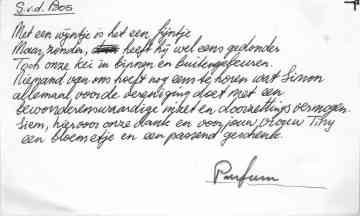 S.v.d. Bos.
Met een wijntje is het een fijntje
Maar, zonden, heeft hij wel eens gedonder
Toch onze kei in binnen en buitengebeuren.
Niemand van ons heeft nog eens te horen wat Simon
allemaal voor de vereniging doet met een
bewonderenswaardige inzet en doorzettings vermogen.
Siem, hiervoor onze dank en voor jouw vrouw Tiny
een bloemetje en een passend geschenk.
Parfum